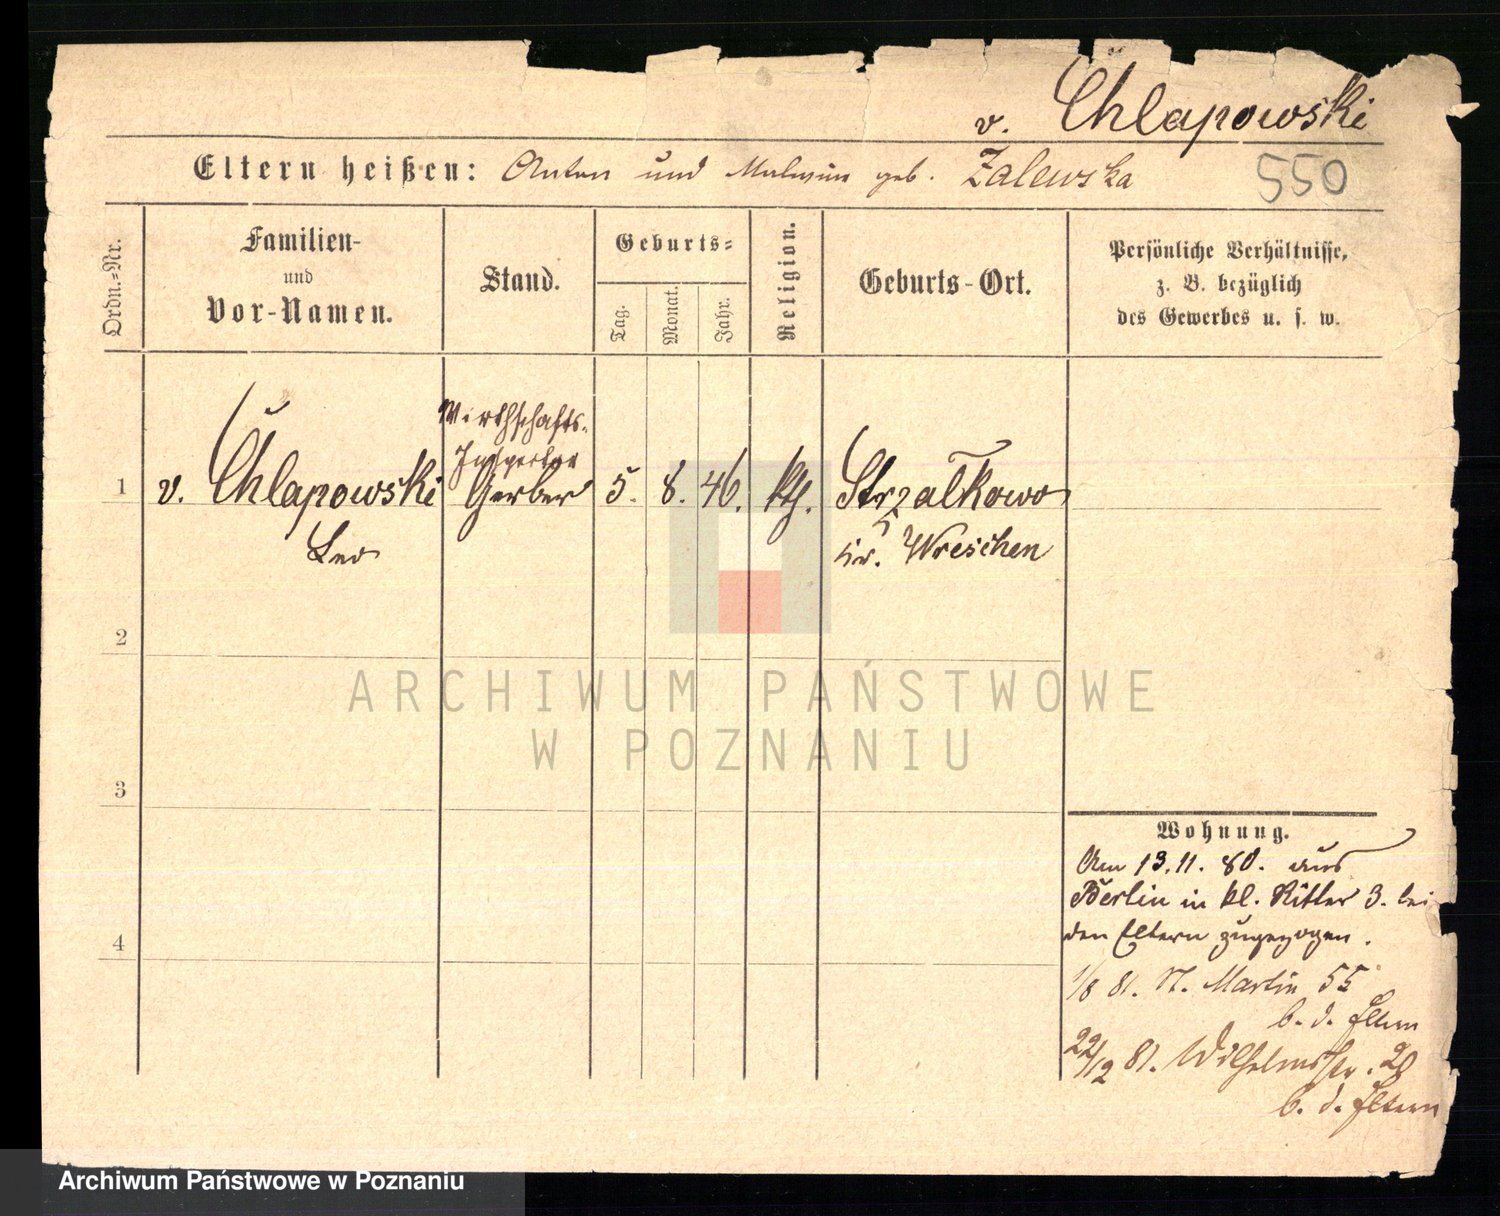 v. Chlapowski
Eltern heißen: Anton und Malwine geb. Zalewska
550
Ordn.-Nr.
Familien-
und
Vor-Namen.
Stand.
Geburts-
Tag.
Monat.
Jahr.
Religion.
Geburts-Ort.
Persönliche Verhältnisse,
z. B. bezüglich
des Gewerbes u. s. w.
Wirthschafts-
Inspector
1 v. Chlapowski Gerber 5. 8. 46. kth. Strzałkowo
Leo Kr. Wreschen
2
3
4
Wohnung.
Am 13.11.80. aus
Berlin in kl. Ritter 3. bei
den Eltern zugezogen.
1/8 81. St. Martin 55
b. d. Eltern
22/12 81. Wilhelmstr. 28
b. d. Eltern
ARCHIWUM PAŃSTWOWE
W POZNANIU
Archiwum Państwowe w Poznaniu